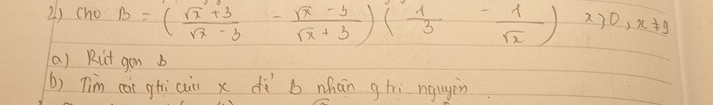 2) Cho B = ( (√x + 3)/(√x - 3) - (√x - 3)/(√x + 3) ) ( 1/3 - 1/√x ) x > 0, x ≠ 9
a) Rút gọn b
b) Tìm các gtri của x để b nhận g tri nguyên